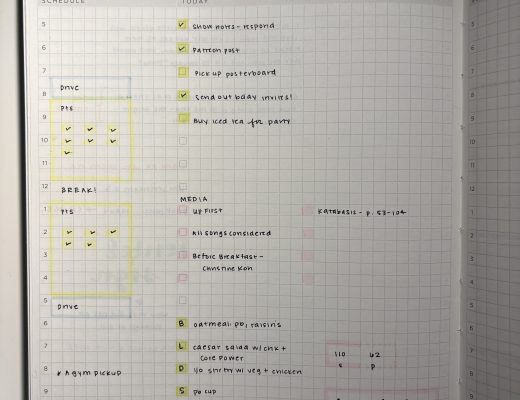 SCHEDULE
TODAY
5
6
7
Drive
8
Pts
9
10
11
12
BREAK!
1
Pts
2
3
4
5
Drive
6
7
8
gym pickup
9
✓ Show notes - respond
✓ Patreon post
Pick up posterboard
✓ Send out bday invites!
Buy iced tea for party
MEDIA
Up First
All Songs Considered
Before Breakfast -
Christine Koh
Katabasis - p. 53-104
B oatmeal, pb, raisins
L caesar salad w/ chk +
Core Power
D stir fry w/ veg + chicken
S pb cup
110
62
S
P
5
6
7
8
9
10
11
12
1
2
3
4
5
6
7
8
9